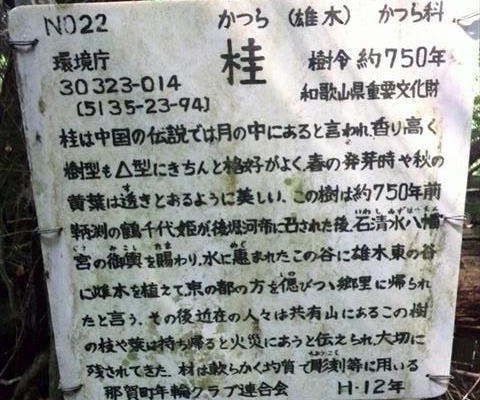 NO22 かつら(雄木) かつら科
環境庁 桂 樹令 約750年
30323-014
(5135-23-94) 和歌山県重要文化財
桂は中国の伝説では月の中にあると言われ、香り高く
樹型も△型にきちんと格好がよく、春の発芽時や秋の
黄葉は透きとおるように美しい。この樹は約750年前
鞆渕の鶴千代姫が後堀河帝に召された後、石清水八幡
宮の御輿を賜わり、水に恵まれたこの谷に雄木、東の谷
に雌木を植えて京の都の方を偲びつゝ郷里に帰られ
たと言う。その後近在の人々は共有山にあるこの樹
の枝や葉は持ち帰ると火災にあうと伝えられ、大切に
残されてきた。材は軟らかく均質で彫刻等に用いる
那賀町年輪クラブ連合会 H・12年